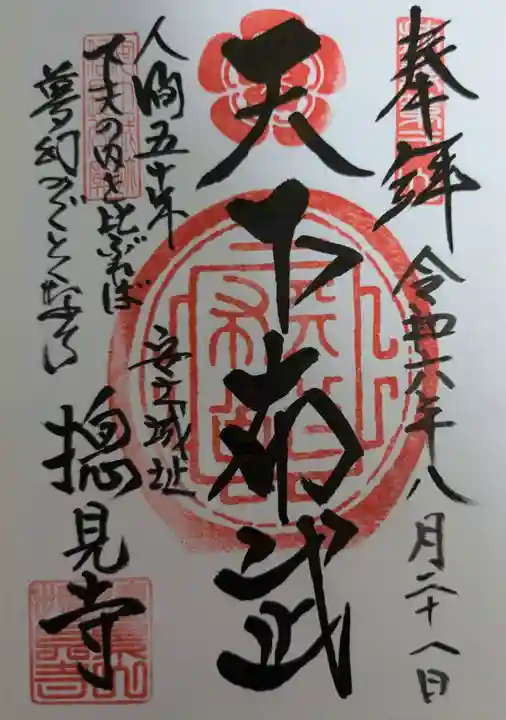 奉拝
令和六年八月二十八日
天下布武
安土城址
人間五十年
下天の内を比ぶれば
夢幻のごとくなり
摠見寺